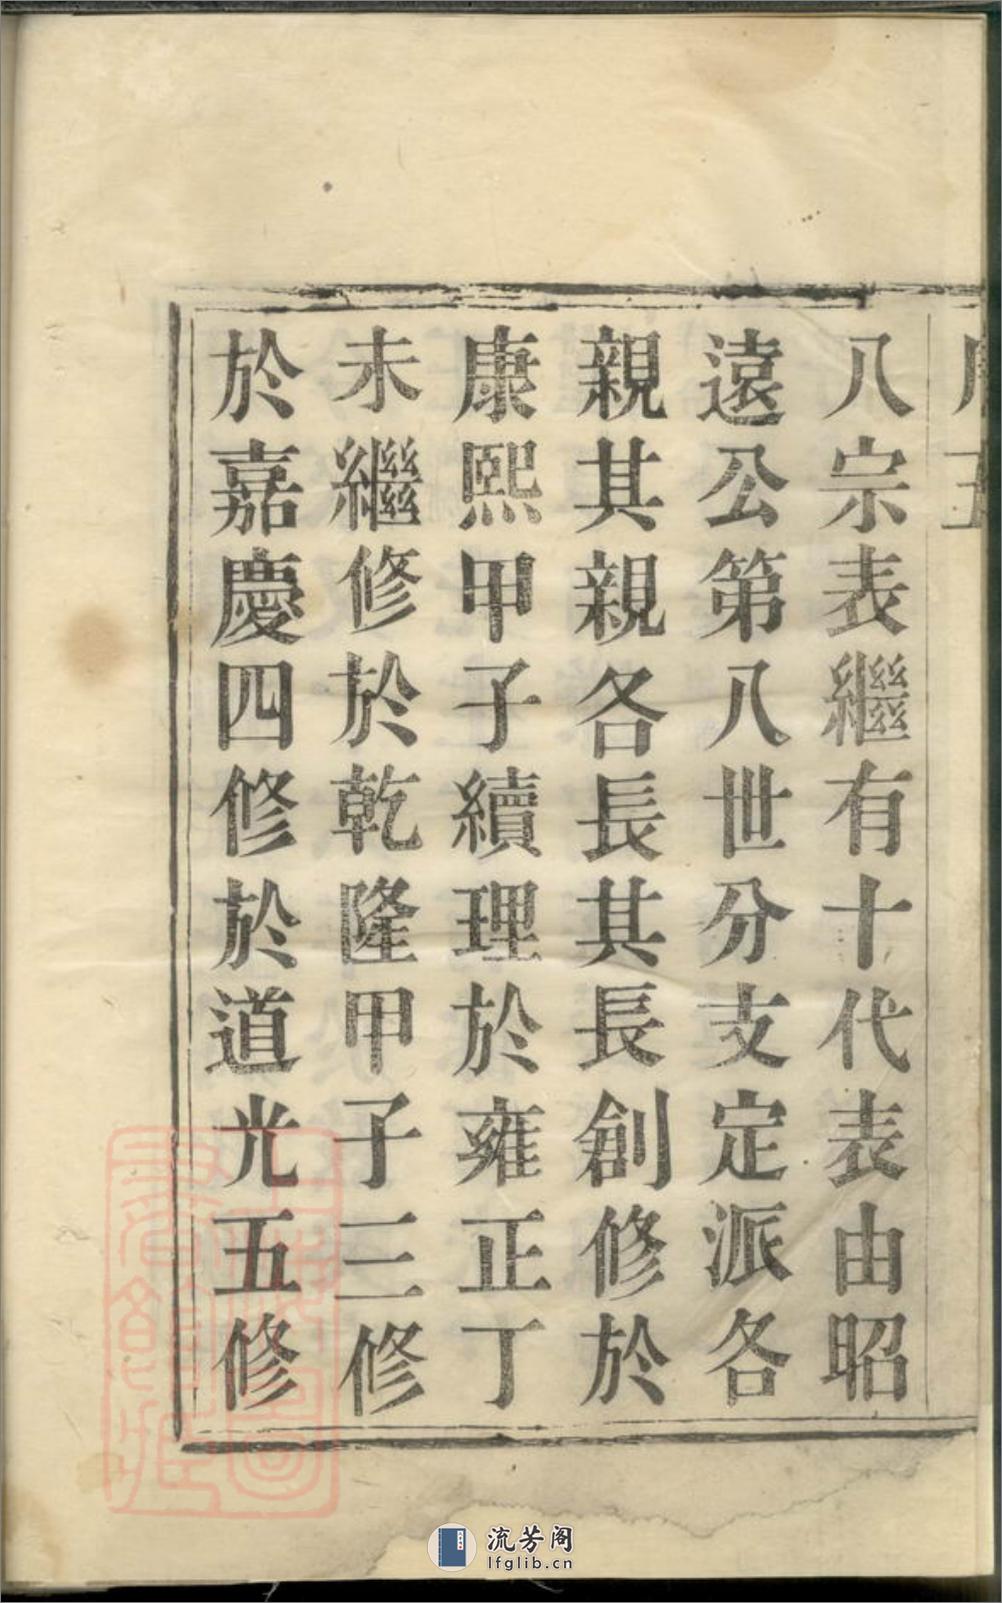 八宗表繼有十代表由昭
遠公第八世分支定派各
親其親各長其長創修於
康熙甲子續理於雍正丁
未繼修於乾隆甲子三修
於嘉慶四修於道光五修
流芳阁
lfglib.cn